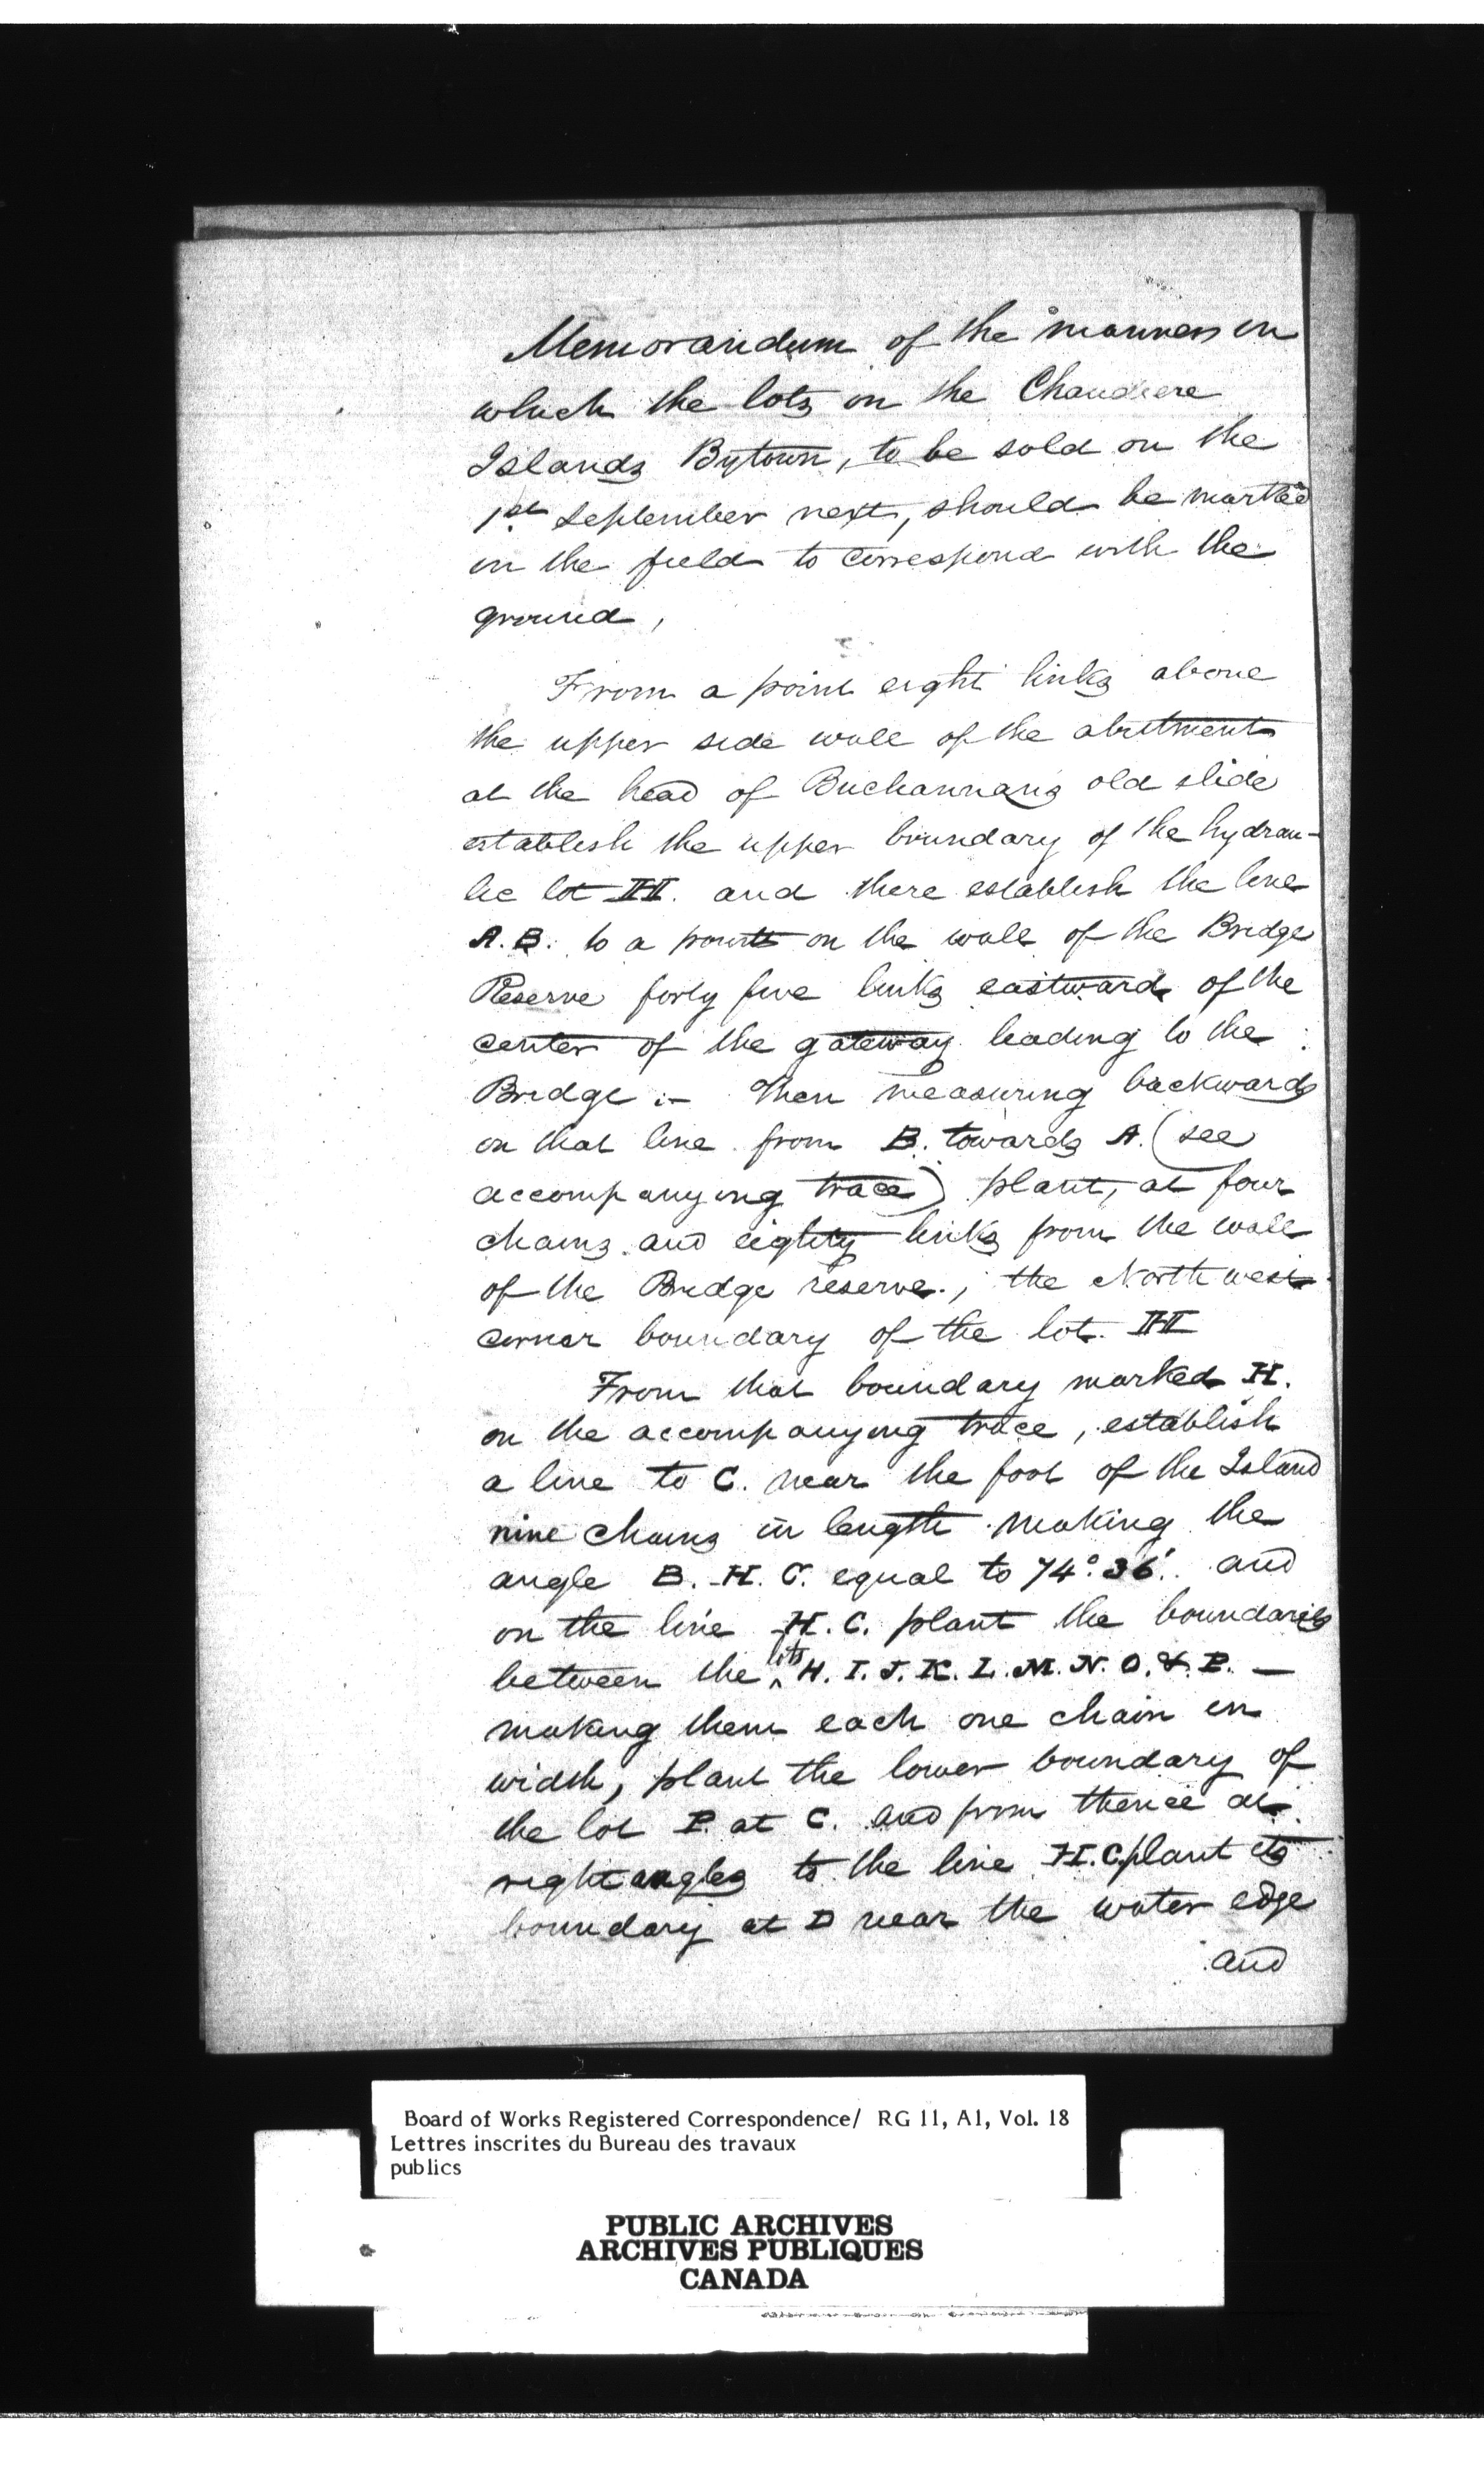 Memorandum of the manner in
which the lots on the Chaudiere
Islands Bytown, to be sold on the
1st September next, should be marked
in the field to correspond with the
ground,
From a point eight links above
the upper side wall of the abutment
at the head of Buchannans old slide
establish the upper boundary of the hydrau-
lic lot H. and there establish the line
A.B. to a point on the wall of the Bridge
Reserve forty five links eastward of the
center of the gateway leading to the
Bridge :- Then measuring backwards
on that line from B. towards A. (see
accompanying trace) plant, at four
chains and eighty links from the wall
of the Bridge reserve., the North west
corner boundary of the lot. H
From that boundary marked H.
on the accompanying trace, establish
a line to C. near the foot of the Island
nine chains in length making the
angle B. H. C. equal to 74° 36'. and
on the line H. C. plant the boundaries
between the lots H. I. J. K. L. M. N. O. & P. —
making them each one chain in
width, plant the lower boundary of
the lot P. at C. and from thence at
right angles to the line H.C. plant its
boundary at D near the water edge
and
Board of Works Registered Correspondence/ RG 11, A1, Vol. 18
Lettres inscrites du Bureau des travaux
publics
PUBLIC ARCHIVES
ARCHIVES PUBLIQUES
CANADA